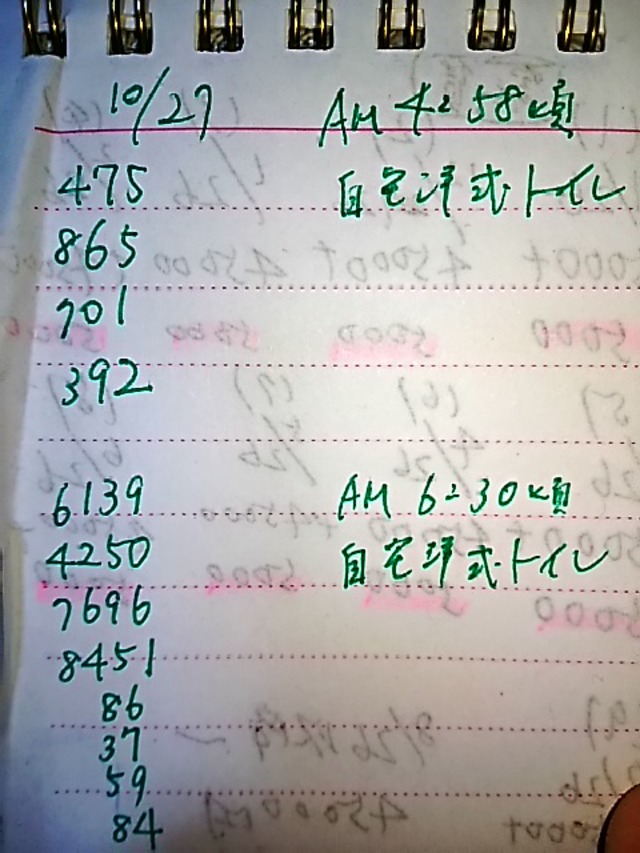 10/27 AM 4:58頃
475 自宅洋式トイレ
865
701
392
6139 AM 6:30頃
4250 自宅洋式トイレ
7696
8451
86
37
59
84